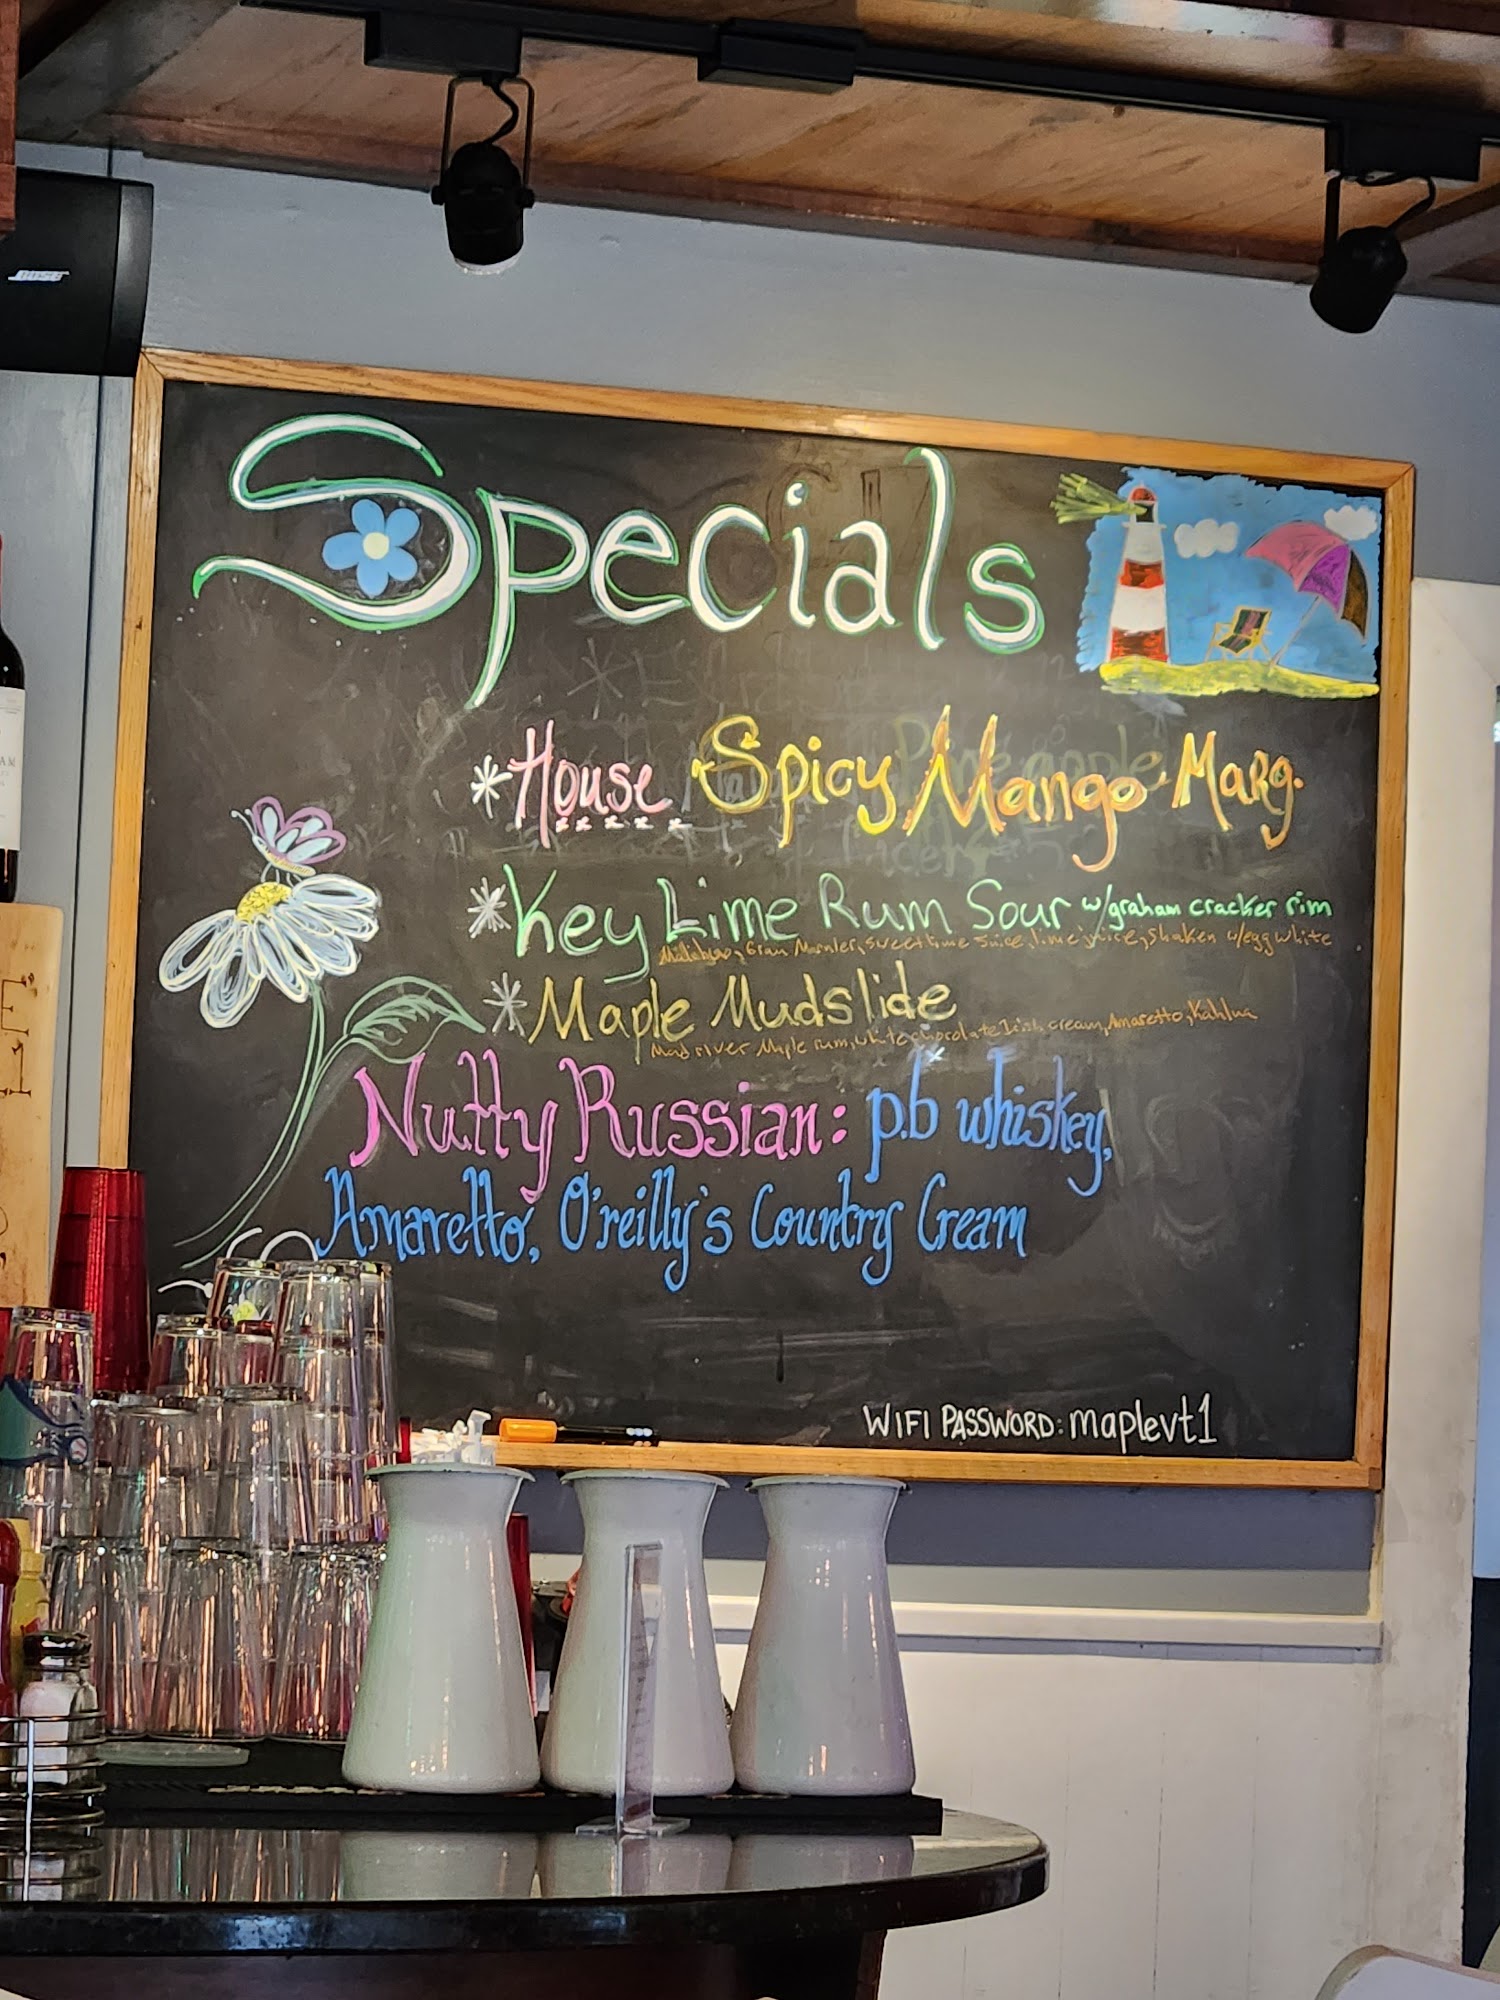 BOSE
Specials
*House Spicy Mango Marg.
*Key Lime Rum Sour w/graham cracker rim
Malibu, Gran Marnier, sweet lime juice, lime juice, shaken w/egg white
*Maple Mudslide
Mad river Maple rum, white chocolate Irish cream, Amaretto, Kahlua
Nutty Russian: p.b whiskey,
Amaretto, O'reilly's Country Cream
WIFI PASSWORD: maplevt1